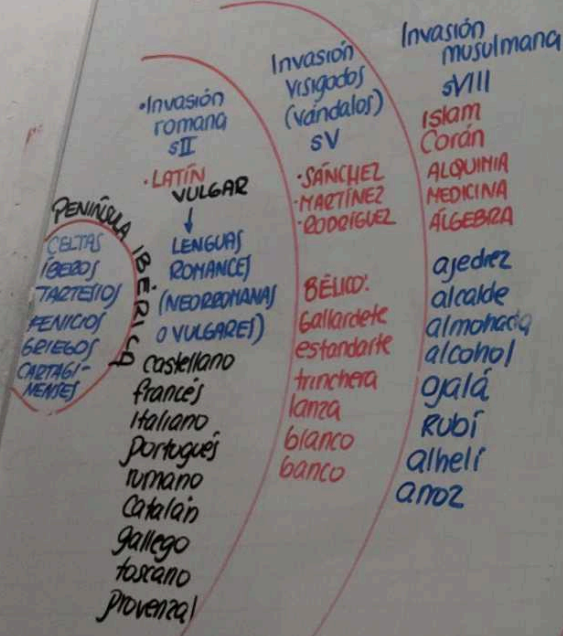 PENÍNSULA IBÉRICA
CELTAS
IBEROS
TARTESIOS
FENICIOS
GRIEGOS
CARTAGI-
NENSES
•Invasión
romana
sII
•LATÍN
VULGAR
↓
LENGUAS
ROMANCES
(NEORROMANAS
O VULGARES)
castellano
francés
Italiano
portugués
rumano
Catalán
gallego
toscano
provenzal
Invasión
visigodos
(vándalos)
sV
•SÁNCHEZ
-MARTÍNEZ
•RODRÍGUEZ
BÉLICO:
Gallardete
estandarte
trinchera
lanza
blanco
banco
Invasión
musulmana
sVIII
Islam
Corán
ALQUIMIA
MEDICINA
ÁLGEBRA
ajedrez
alcalde
almohada
alcohol
Ojalá
Rubí
alhelí
arroz